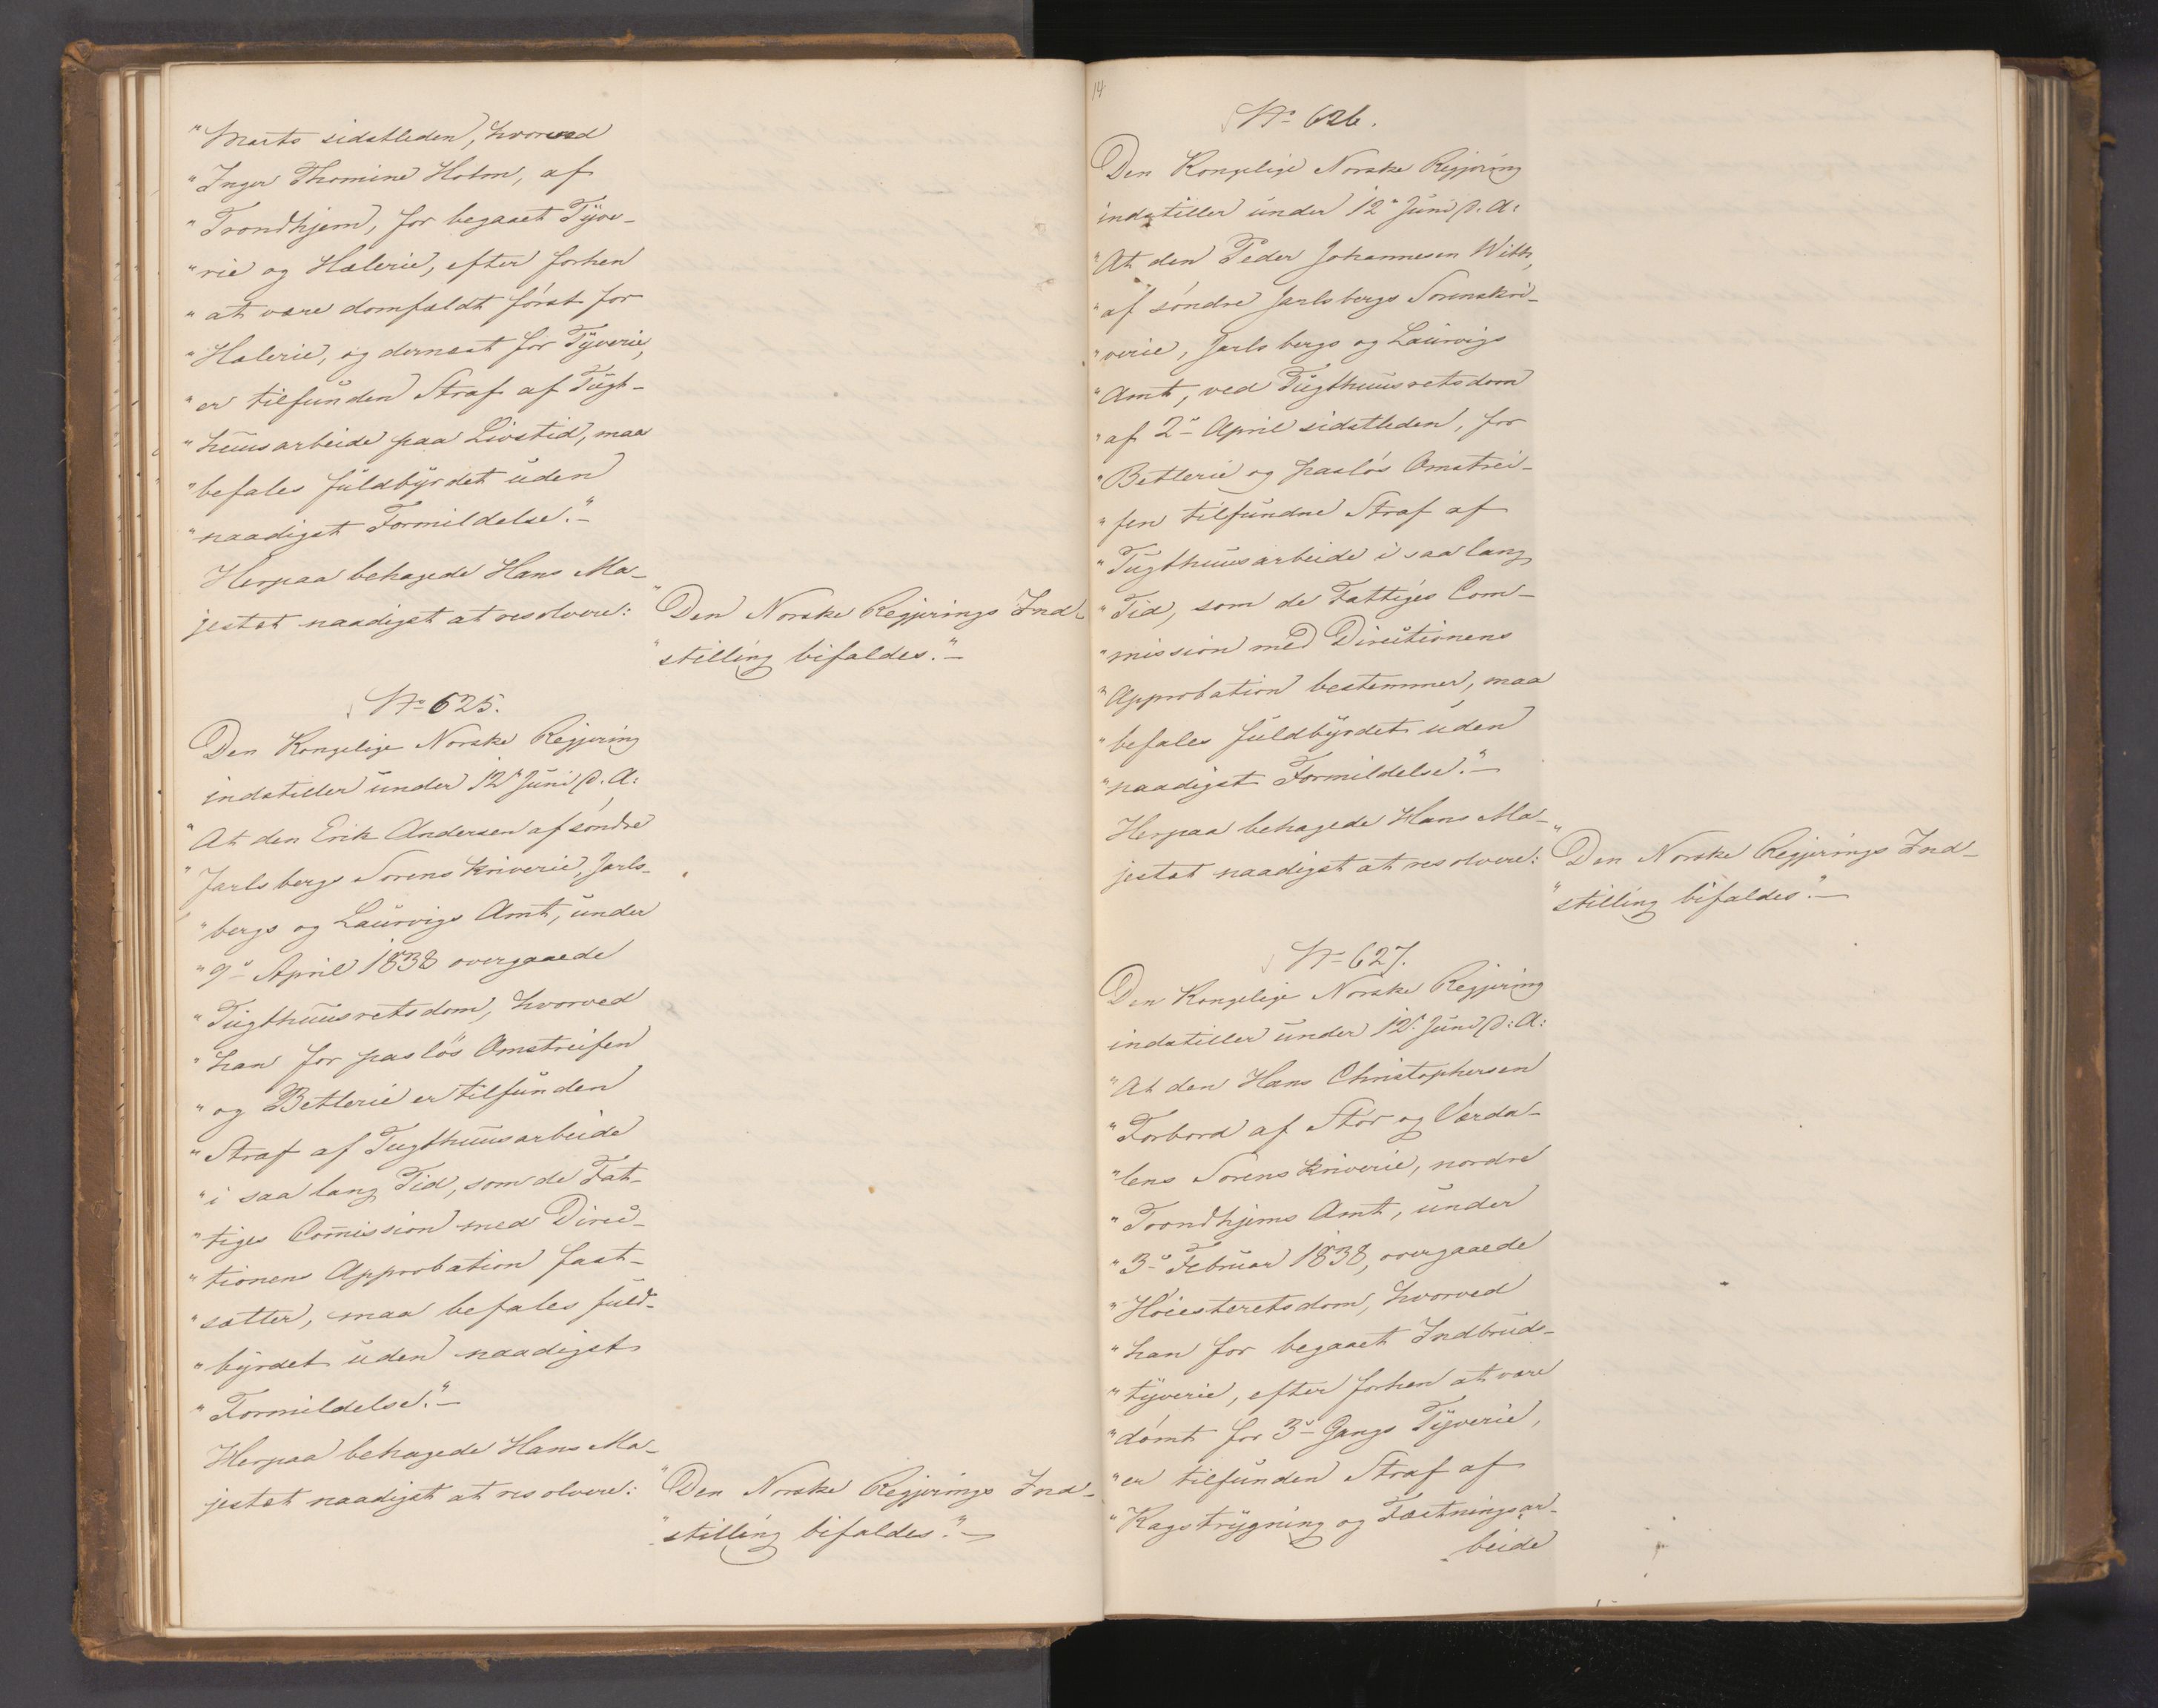 "Marts sidstleden, hvorved
"Inger Thomine Holm, af
"Trondhjem, for begaaet Tyve-
"rie og Hæleri, efter forhen
"at være domfældt først for
"Hælerie, og dernæst for Tyverie,
"er tilfunden Straf af Tugt-
"huusarbeide paa Livstid, maa
"befales fuldbyrdet uden
"naadigst Formildelse."-
Herpaa behagede Hans Ma-
jestæt naadigst at resolvere:
"Den Norske Regjerings Ind-
"stilling bifaldes."-
No 625.
Den Kongelige Norske Regjering
indstiller under 12te Juni d. A:
"At den Erik Andersen af søndre
"Jarlsbergs Sorenskriverie, Jarls-
"bergs og Laurvigs Amt, under
"9de April 1838 overgaaede
"Tugthuusretsdom, hvorved
"han for pasløs Omstreifen
"og Betlerie er tilfunden
"Straf af Tugthuusarbeide
"i saa lang Tid, som de Fat-
"tiges Com̄ission med Direc-
"tionens Approbation fast-
"sætter, maa befales fuld-
"byrdet uden naadigst
"Formildelse."-
Herpaa behagede Hans Ma-
jestæt naadigst at resolvere:
"Den Norske Regjerings Ind-
"stilling bifaldes."-
14
No 626.
Den Kongelige Norske Regjering
indstiller under 12te Juni d. A:
"At den Peder Johannesen With,
"af søndre Jarlsbergs Sorenskri-
"verie, Jarlsbergs og Laurvigs
"Amt, ved Tugthuusretsdom
"af 2den April sidstleden, for
"Betlerie og pasløs Omstrei-
"fen tilfundne Straf af
"Tugthuusarbeide i saa lang
"Tid, som de Fattiges Com-
"mission med Directionens
"Approbation bestemmer, maa
"befales fuldbyrdet uden
"naadigst Formildelse."-
Herpaa behagede Hans Ma-
jestæt naadigst at resolvere:
"Den Norske Regjerings Ind-
"stilling bifaldes."-
No 627.
Den Kongelige Norske Regjering
indstiller under 12te Juni d: A:
"At den Hans Christophersen
"Forbord af Stør og Værda-
"lens Sorenskriverie, nordre
"Trondhjems Amt, under
"3die Februar 1838, overgaaede
"Høiesteretsdom, hvorved
"han for begaaet Indbruds-
"tyverie, efter forhen at være
"dømt for 3die Gangs Tyverie,
"er tilfunden Straf af
"Kagstrygning og Fæstningsar-
"beide